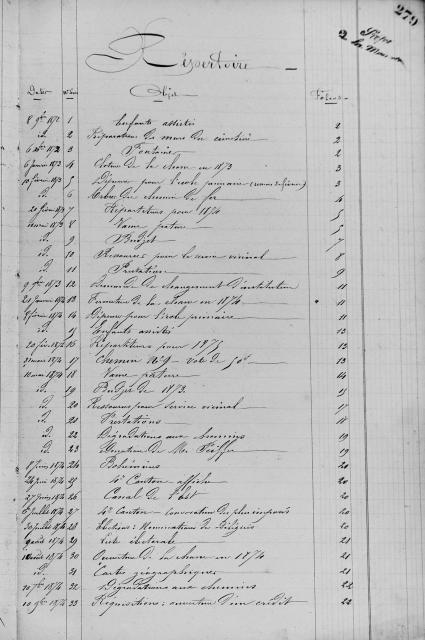 279
Répertoire
Dates Objet Folios
8 9bre 1872 1 Enfants assistés 2
id. 2 Réparations du mur du cimetière 2
3 Fontaine 2
6 janvier 1873 4 Cloture de la chasse en 1873 3
5 Dépenses pour l'école primaire 3
id. 6 chemin de fer 4
20 février 1873 7 Répartiteurs pour 1874 5
8 Vaine pature 5
id. 9 Budget 7
id. 10 Ressources pour le service vicinal 8
id. 11 Prestations 9
9 9bre 1873 12 Demande de changement d'institution 11
21 janvier 1874 13 Fermeture de la chasse en 1874 11
8 février 1874 14 Dépenses pour l'école primaire 11
id. 15 Enfants assistés 13
20 février 1874 16 Répartiteurs pour 1875 13
1874 17 Chemin N° 9 vote de 50f 13
1874 18 Vaine pature 14
id. 19 Budget de 1873 15
id. 20 Ressources pour service vicinal 17
id. 21 Prestations 18
id. 22 Dégradations aux chemins 19
id. 23 de Mr 19
1874 24 Bohémiens 20
1874 25 4e Canton affiche 20
27 juin 1874 26 Canal de l'est 20
1874 27 4e Canton convocation de plus imposés 20
1874 28 Elections: Nominations de Délégués 20
1874 29 Liste électorale 21
1874 30 Ouverture de la chasse en 1874 21
id. 31 Cartes géographiques 21
1874 32 Dégradations aux chemins 22
1874 33 Réquisitions: ouverture d'un crédit 22